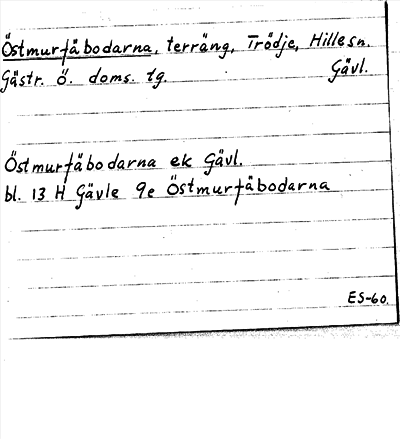 Östmurfäbodarna, terräng, Trödje, Hillesn.
Gästr. ö. doms. tg. Gävl.
Östmurfäbodarna ek Gävl.
bl. 13 H Gävle 9e Östmurfäbodarna
ES-60.